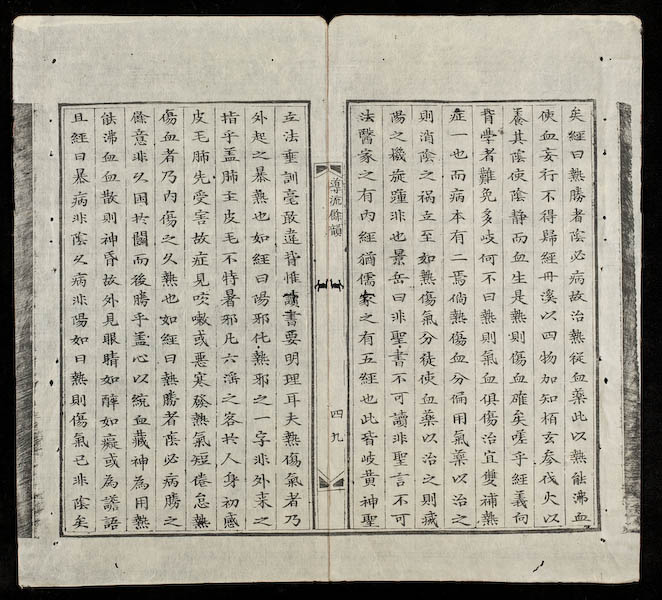 矣經曰熱勝者陰必病故治熱從血藥此以熱能沸血
使血妄行不得歸經丹溪以四物加知栢玄參伐火以
養其陰使陰靜而血生是熱則傷血確矣嗟乎經義向
背學者難免多岐何不曰熱則氣血俱傷治宜雙補熱
症一也而病本有二焉倘熱傷血分偏用氣藥以治之
則消陰之禍立至如熱傷氣分徒使血藥以治之則滅
陽之機旋踵非也景岳曰非聖書不可讀非聖言不可
法醫家之有內經猶儒家之有五經也此晉岐黄神聖
導流餘韻
四九
立法垂訓毫敢違背惟讀書要明理耳夫熱傷氣者乃
外起之暴熱也如經曰陽邪化熱邪之一字非外來之
指乎盖肺主皮毛不特暑邪凡六滛之客於人身初感
皮毛肺先受害故症見咳嗽或惡寒發熱氣短倦怠熱
傷血者乃內傷之久熱也如經曰熱勝者陰必病勝之
餘意非以困於鬭而後勝乎盖心以統血藏神為用熱
能沸血血散則神昏故外見眼睛如醉如癡或為譫語
且經曰暴病非陰久病非陽如曰熱則傷氣已非陰矣